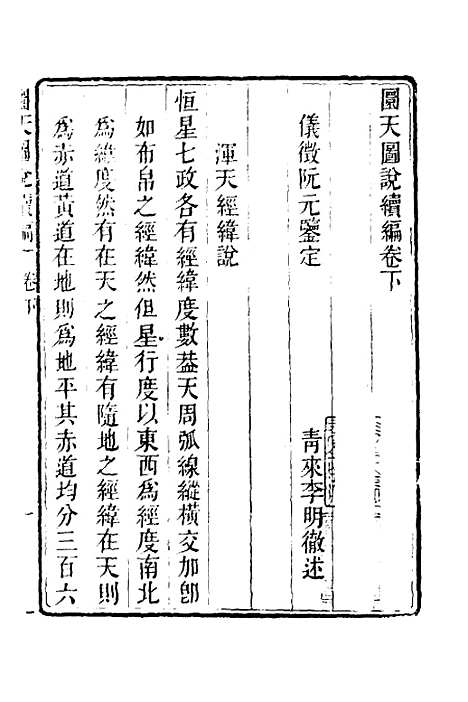 圜天圖說續編卷下
儀徵阮元鑒定
青來李明徹述
渾天經緯說
恒星七政各有經緯度數葢天周弧線縱橫交加卽
如布帛之經緯然但星行度以東西爲經度南北
爲緯度然有在天之經緯有隨地之經緯在天則
爲赤道黃道在地則爲地平其赤道均分三百六
圜天圖說續編 卷下 一